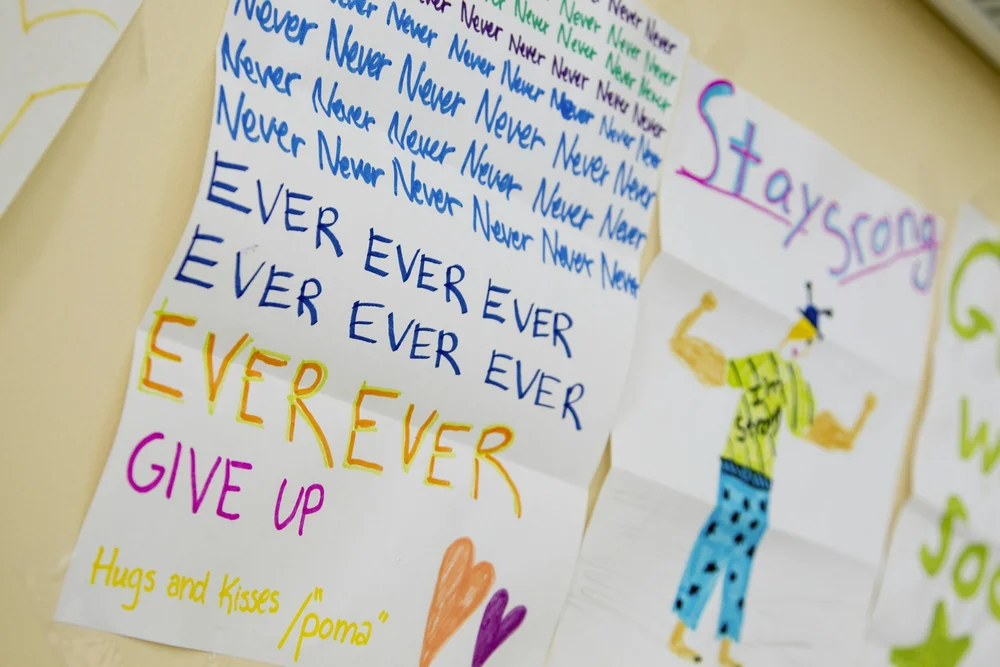 Never Never Never
Never Never Never Never
Never Never Never Never Never Never
Never Never Never Never Never Never Never
Never Never Never Never Never Never
Never Never Never Never Never Never
Never Never Never Never Never Never
EVER EVER EVER
EVER EVER EVER
EVER EVER
GIVE UP
Hugs and Kisses /"poma"
Stay
srong
I'm
strong